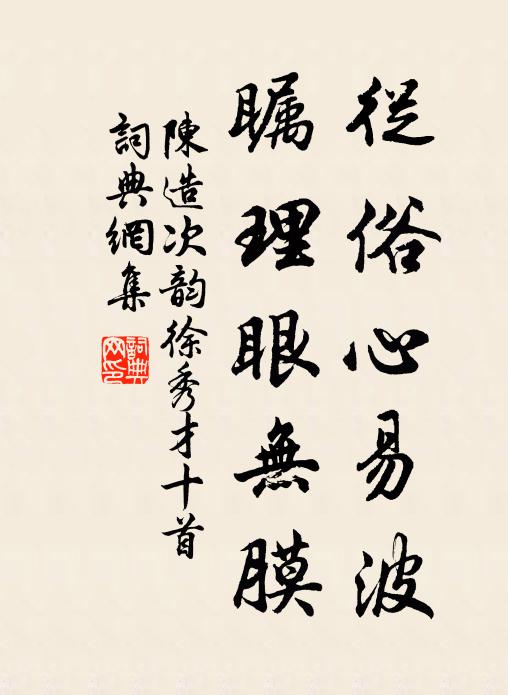 從俗心易波
矚理眼無膜
陳造次韵徐秀才十首
詞典網集
詞典網印